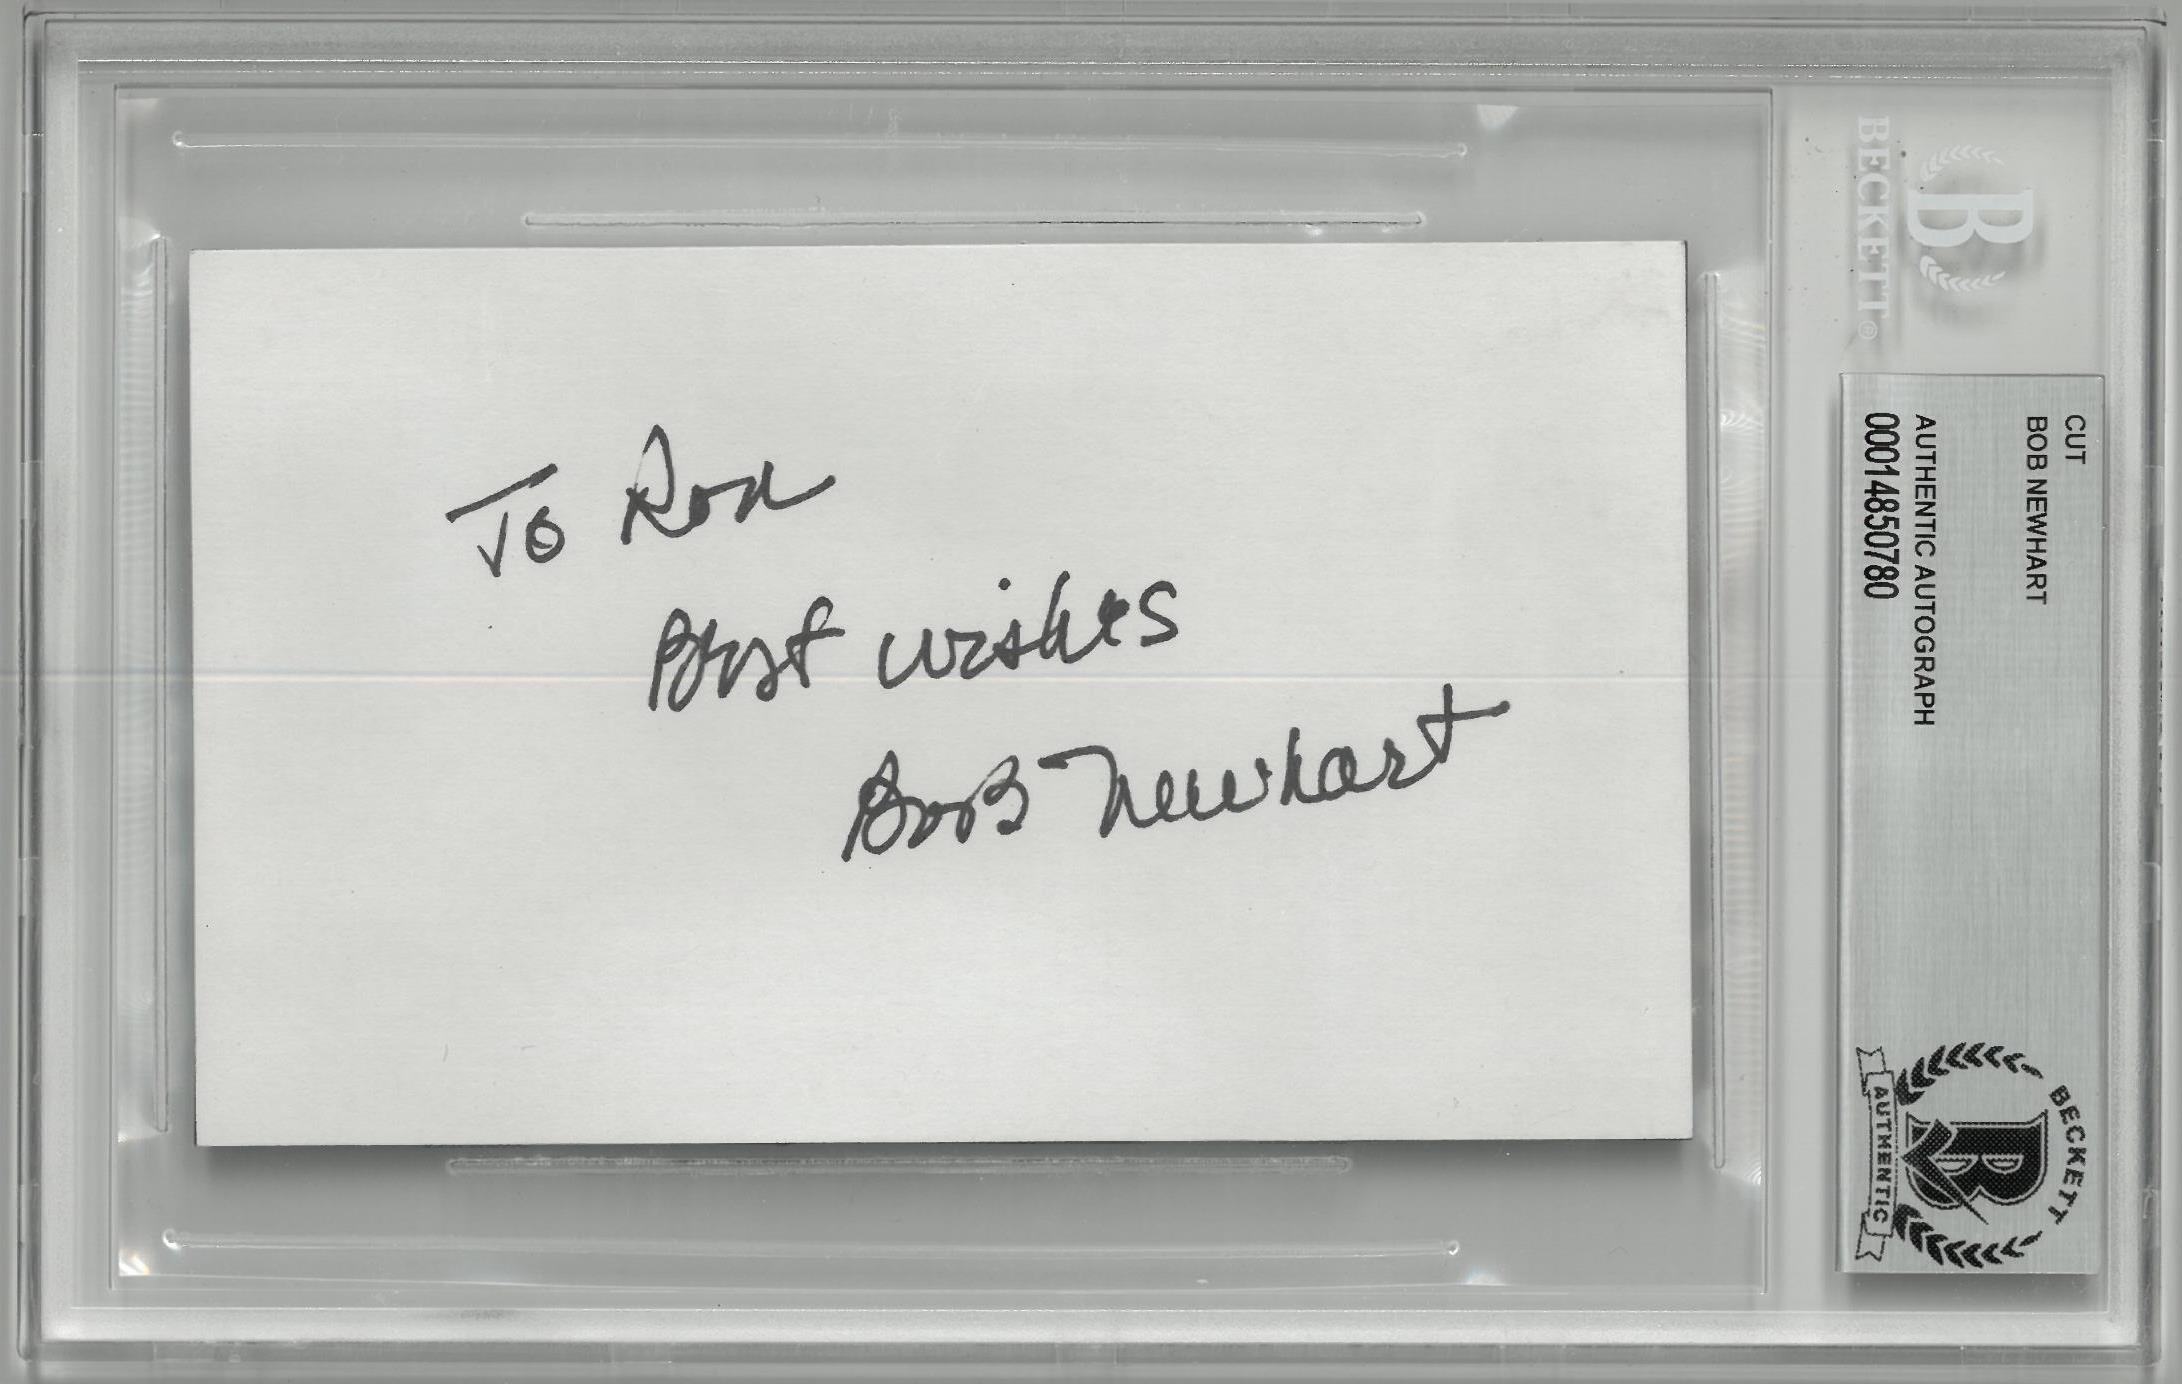 To Ron
Best wishes
Bob Newhart
BECKETT®
CUT
BOB NEWHART
AUTHENTIC AUTOGRAPH
00014850780
BECKETT
AUTHENTIC